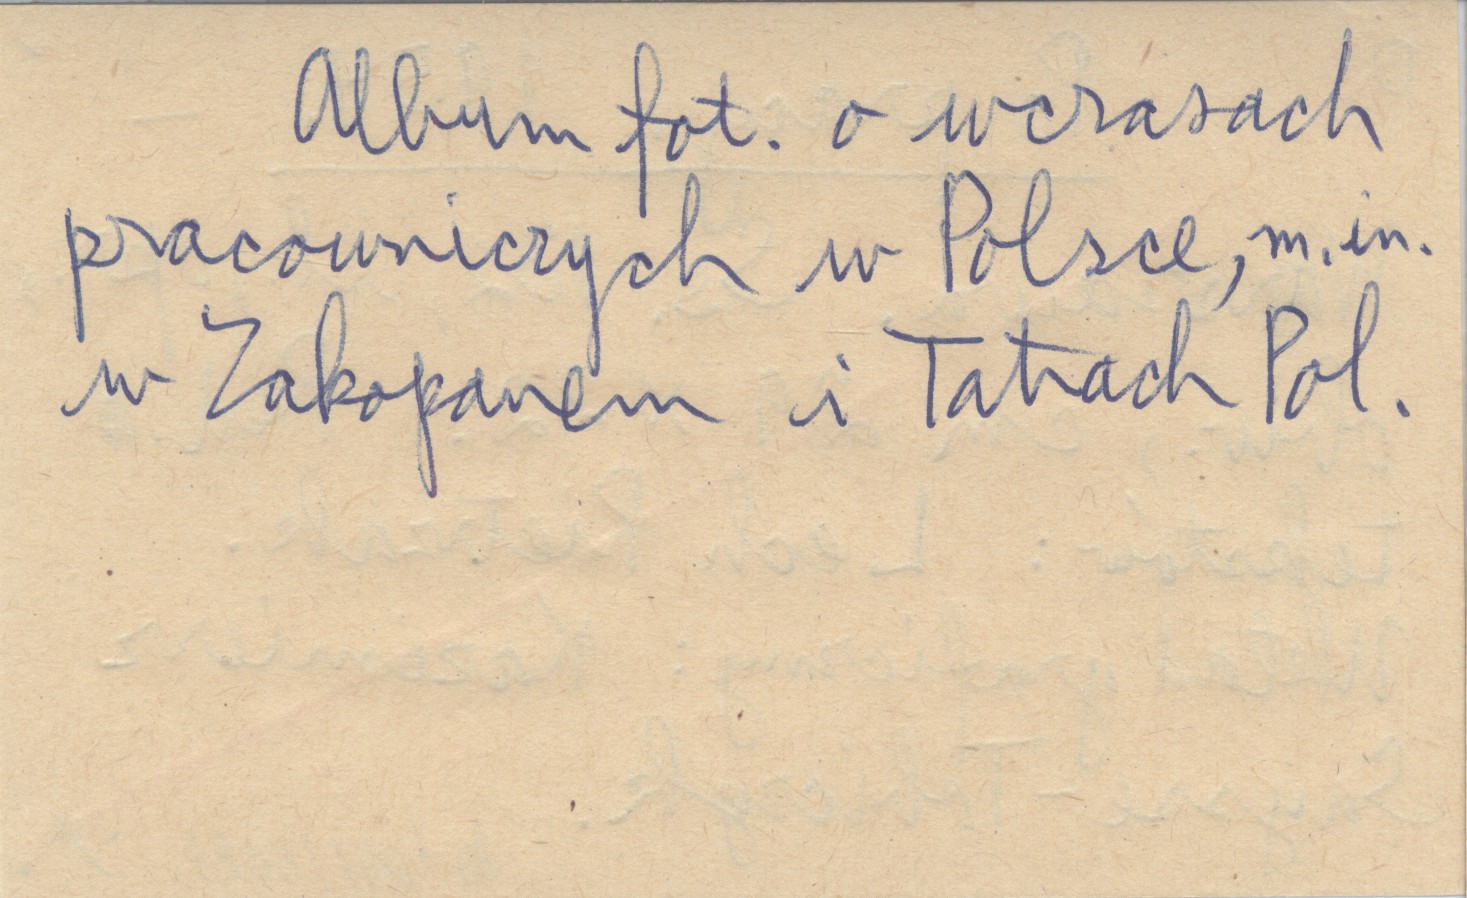 Album fot. o wczasach
pracowniczych w Polsce, m.in.
w Zakopanem i Tatrach Pol.